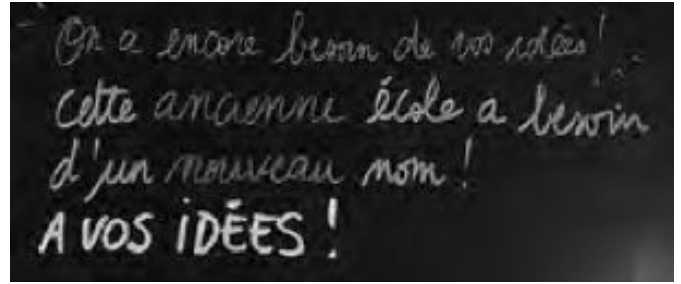 On a encore besoin de vos idées!
Cette ancienne école a besoin
d'un nouveau nom !
A VOS IDÉES !